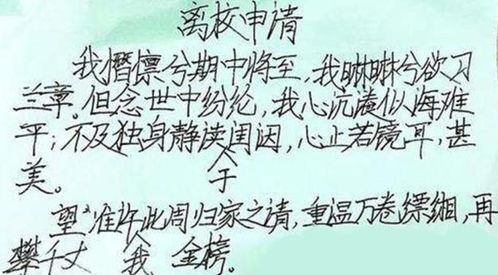 离校申请
我憯懔兮期中将至,我啉啉兮欲习
兰章。但念世中纷纶,我心沉淹似海难
平;不及独身静读闺因,心止若镜耳,甚
于
美。
望准许此周归家之请,重温万卷缥缃,再
攀千丈 我 金榜。